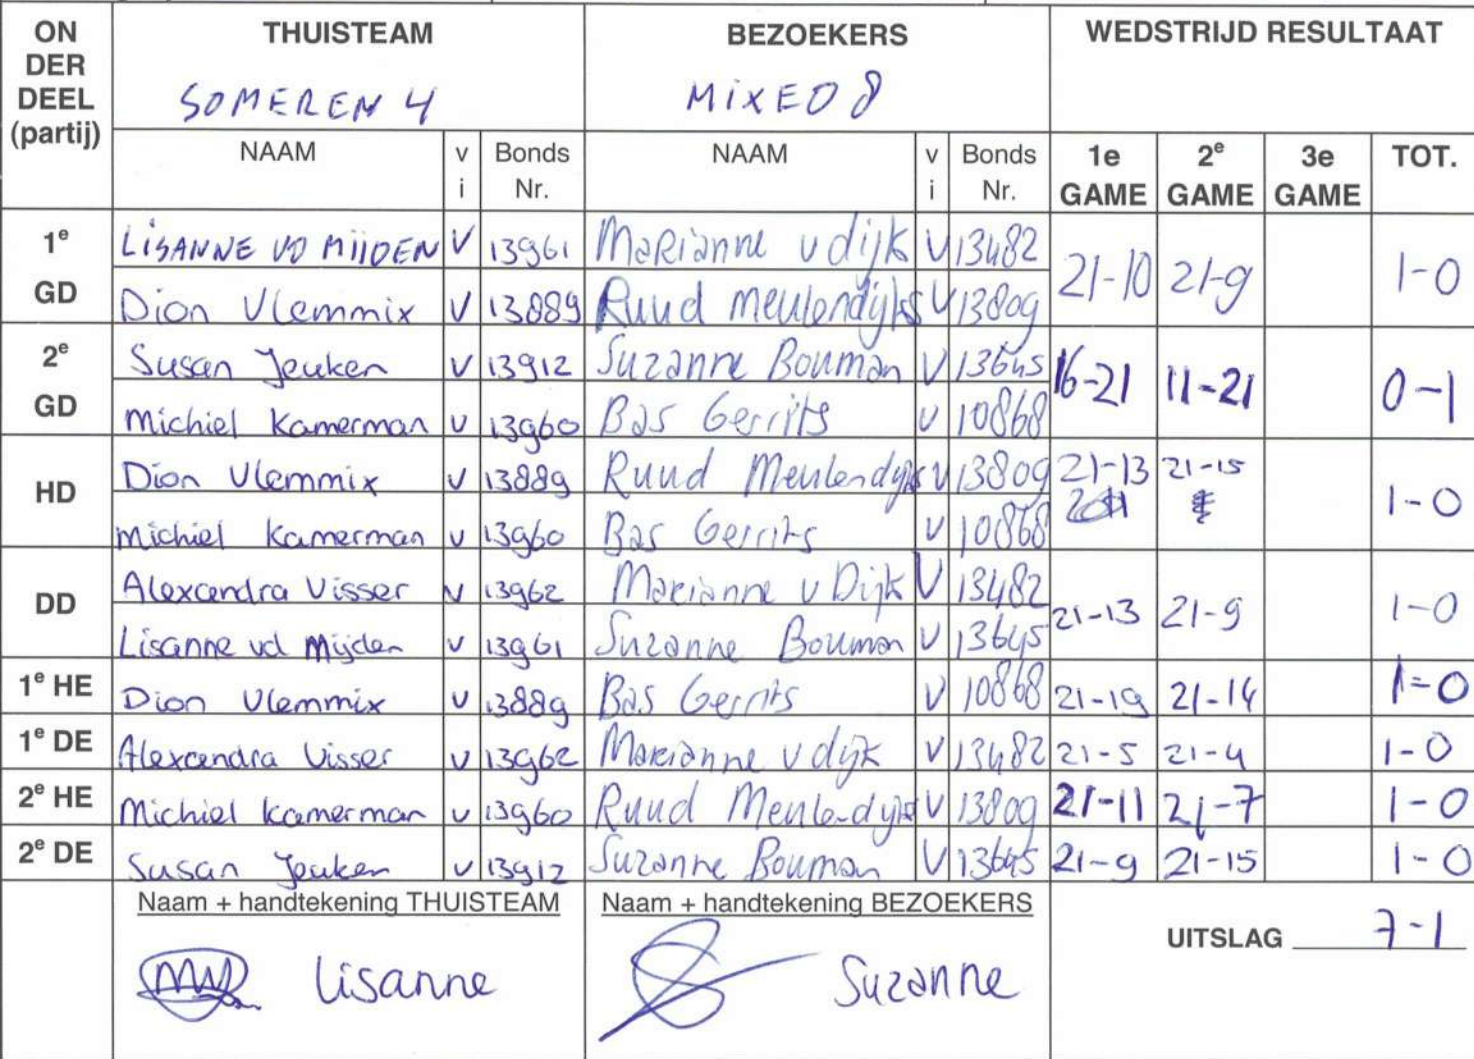 ON DER DEEL (partij) THUISTEAM BEZOEKERS WEDSTRIJD RESULTAAT
SOMEREN 4 MIXED 8
NAAM v i Bonds Nr. NAAM v i Bonds Nr. 1e GAME 2e GAME 3e GAME TOT.
1e GD LISANNE VD MIJDEN V 13961 Marianne v dijk V 13482 21-10 21-9 1-0
Dion Vlemmix V 13889 Ruud Meulendijks V 13809
2e GD Susan Jeuken V 13912 Suzanne Bouman V 13645 16-21 11-21 0-1
Michiel Kamerman V 13960 Bas Gerrits V 10868
HD Dion Vlemmix V 13889 Ruud Meulendijks V 13809 21-13 21-15 1-0
Michiel Kamerman V 13960 Bas Gerrits V 10868
DD Alexandra Visser V 13962 Marianne v Dijk V 13482 21-13 21-9 1-0
Lisanne vd Mijden V 13961 Suzanne Bouman V 13645
1e HE Dion Vlemmix V 13889 Bas Gerrits V 10868 21-19 21-14 1-0
1e DE Alexandra Visser V 13962 Marianne v dijk V 13482 21-5 21-4 1-0
2e HE Michiel Kamerman V 13960 Ruud Meulendijks V 13809 21-11 21-7 1-0
2e DE Susan Jeuken V 13912 Suzanne Bouman V 13645 21-9 21-15 1-0
Naam + handtekening THUISTEAM Naam + handtekening BEZOEKERS
UITSLAG 7-1
Lisanne Suzanne